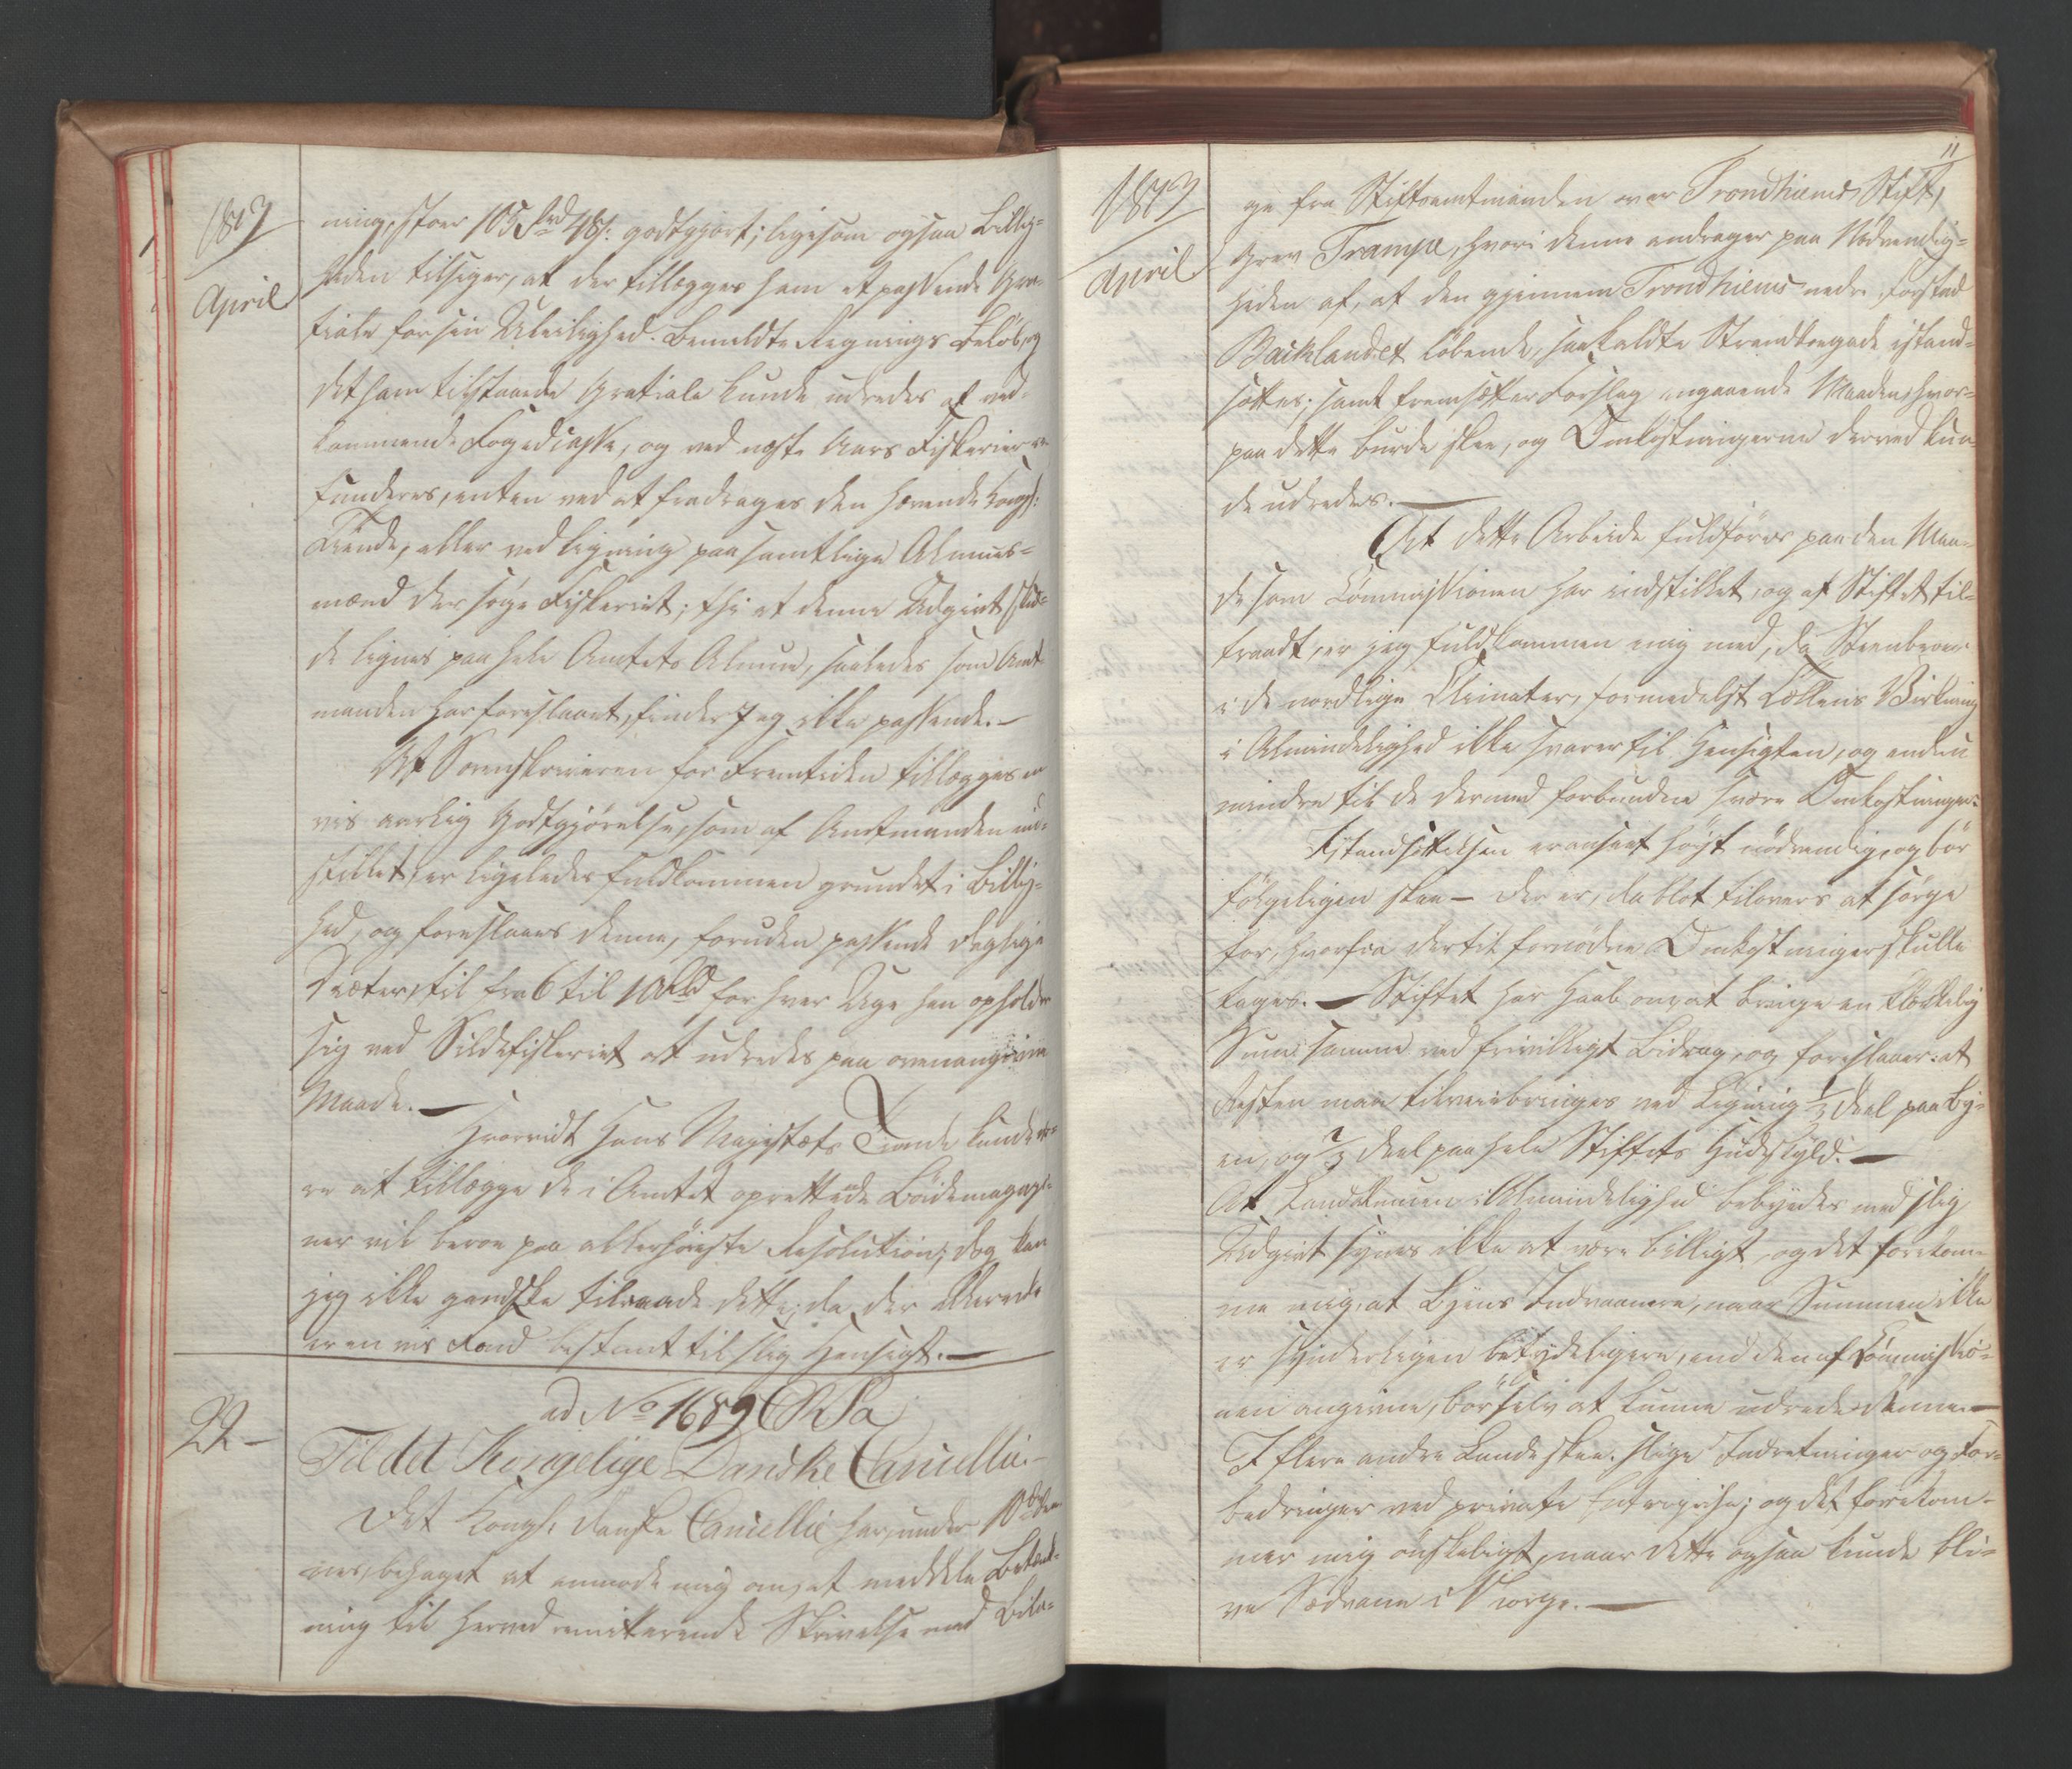 1813
April
ning, stor 105 Rd 48 s. godtgjort; ligesom ogsaa Billig-
heden tilsiger, at der tillægges ham et passende Gra-
tiale for sin Uleilighed. Bemeldte Regnings Beløb, og
det ham tilstaaede Gratiale kunde udredes af ved-
kommende Fogedcasse, og ved næste Aars Fiskerier re-
funderes, enten ved at fradrages den hævende Kongl:
Tiende, eller ved Ligning paa samtlige Almues-
mænd der søge Fiskeriet; thi at denne Udgivt skul-
de lignes paa hele Amtets Almue, saaledes som Amt-
manden har foreslaaet, finder Jeg ikke passende.—
At Sorenskriveren for Fremtiden tillægges en
vis aarlig Godtgjørelse, som af Amtmanden ind-
stillet, er ligeledes fuldkommen grundet i Billig-
hed, og foreslaaes denne, foruden passende daglige
Diæter, til fra 6 til 10 Rd for hver Uge han opholder
sig ved Sildefiskeriet at udredes paa ovenangivne
Maade.—
Hvorvidt Hans Majestæts Tiende kunde væ-
re at tillægge de i Amtet oprettede Bøidemagazi-
ner vil beroe paa allerhøieste Resolution; dog kan
jeg ikke gandske tilraade dette, da der allerede
er en vis Fond bestemt til slig Hensigt.—
22—
ad No 1689
Til det Kongelige Danske Cancellie.—
Det Kongl. danske Cancellie har, under 10de den-
nes, behaget at anmode mig om, at meddele Betænk-
ning til herved remitterende Skrivelse med Bila-
11
1813
April
ge fra Stiftamtmanden over Trondhiems Stift,
Grev Trampe, hvori denne andrager paa Nødvendig-
heden af, at den gjennem Trondhiems nedre Forstad
Baklandet løbende, saa kaldte Strandbregade istand-
sættes; samt fremsætter Forslag angaaende Maaden, hvor-
paa dette burde skee, og Omkostningerne derved kun-
de udredes.—
At dette Arbeide fuldføres paa den Maa-
de som Commissionen har indstillet, og af Stiftet til-
traadt, er jeg fuldkommen enig med, da Steenbroer
i de nordlige Climater, formedelst Tællens Virkning
i Almindelighed ikke svarer til Hensigten, og endnu
mindre til de dermed forbundne svære Omkostninger.
Istandsættelsen er anseet høist nødvendig, og bør
følgeligen skee — der er, da blot tilovers at sørge
for, hvorfra dertil fornødne Omkostninger skulle
tages.— Stiftet har Haab om, at bringe en klækkelig
Sum sammen ved frivilligt Bidrag, og foreslaaer: at
Resten maa tilveiebringes ved Ligning 1/3 Deel paa By-
en, og 2/3 Deel paa hele Stiftets Hudskyld.—
At Landalmuen i Almindelighed bebyrdes med slig
Udgivt synes ikke at være billigt, og det forekom-
me mig, at Byens Indvaanere, naar Summen ikke
er synderligen betydeligere, end den af Commissio-
nen angivne, bør selv at kunne udrede denne.—
I flere andre Lande skee slige Indretninger og For-
bedringer ved private Entreprise; og det forekom-
mer mig ønskeligt, naar dette ogsaa kunde bli-
ve Sædvane i Norge.—